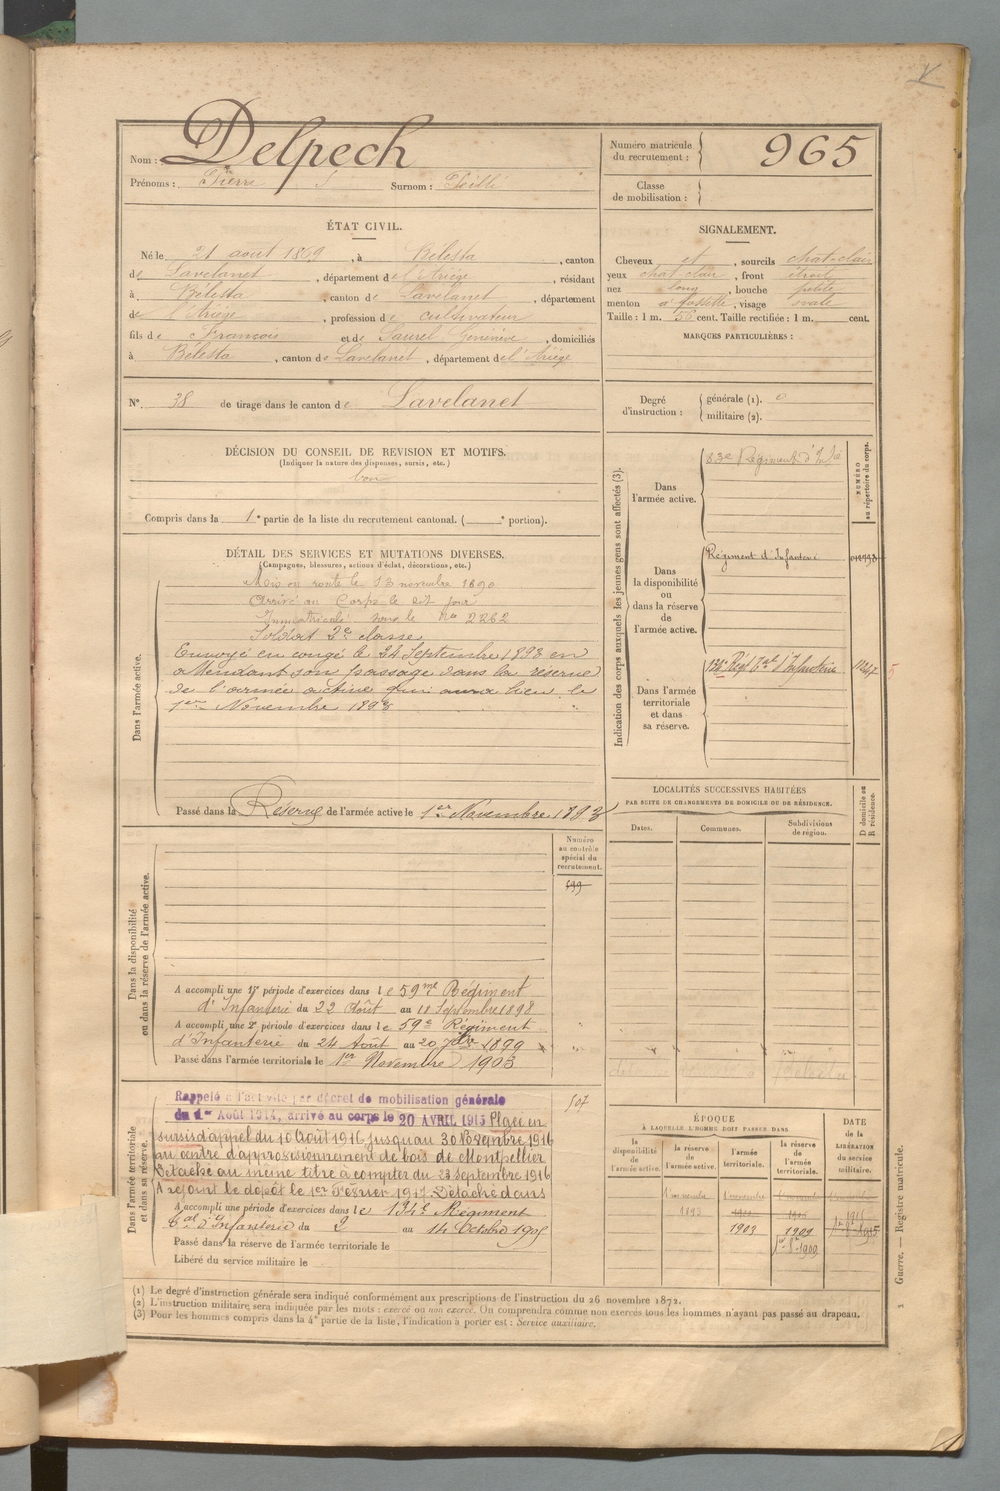 Nom : Delpech
Prénoms : Pierre Surnom :
Numéro matricule du recrutement : 965
Classe de mobilisation :
ÉTAT CIVIL.
Né le 21 août 1869, à Bélesta, canton
de Lavelanet, département de l'Ariège, résidant
à Bélesta, canton de Lavelanet, département
de l'Ariège, profession de cultivateur
fils de François et de Saurel Geneviève, domiciliés
à Bélesta, canton de Lavelanet, département de l'Ariège
N° 38 de tirage dans le canton de Lavelanet
SIGNALEMENT.
Cheveux et, sourcils chat-clair
yeux chat-clair, front étroit
nez long, bouche petite
menton à fossette, visage ovale
Taille : 1 m. 56 cent. Taille rectifiée : 1 m. cent.
MARQUES PARTICULIÈRES :
Degré d'instruction : générale (1). 0
militaire (2).
DÉCISION DU CONSEIL DE REVISION ET MOTIFS.
(Indiquer la nature des dispenses, sursis, etc.)
bon
Compris dans la 1e partie de la liste du recrutement cantonal. ( e portion).
DÉTAIL DES SERVICES ET MUTATIONS DIVERSES.
(Campagnes, blessures, actions d'éclat, décorations, etc.)
Dans l'armée active.
Mis en route le 13 novembre 1890
Arrivé au Corps le dit jour
Immatriculé sous le No 2262
Soldat 2e classe
Envoyé en congé le 24 Septembre 1893 en
attendant son passage dans la réserve
de l'armée active qui aura lieu le
1er Novembre 1893
Passé dans la Réserve de l'armée active le 1er Novembre 1893
Indication des corps auxquels les jeunes gens sont affectés (3).
NUMÉRO au répertoire du corps.
Dans l'armée active.
83e Régiment d'Infie
Dans la disponibilité ou dans la réserve de l'armée active.
Régiment d'Infanterie
Dans l'armée territoriale et dans sa réserve.
134e Régt Tal d'Infanterie
LOCALITÉS SUCCESSIVES HABITÉES
PAR SUITE DE CHANGEMENTS DE DOMICILE OU DE RÉSIDENCE.
Dates.
Communes.
Subdivisions de région.
D domicile ou R résidence.
Dans la disponibilité ou dans la réserve de l'armée active.
Numéro au contrôle spécial du recrutement.
A accompli une 1re période d'exercices dans le 59me Régiment
d'Infanterie du 22 Août au 18 Septembre 1898
A accompli une 2e période d'exercices dans le 59e Régiment
d'Infanterie du 24 Août au 20 7bre 1899
Passé dans l'armée territoriale le 1er Novembre 1903
Dans l'armée territoriale et dans sa réserve.
Rappelé à l'activité par décret de mobilisation générale
du 1er Août 1914, arrivé au corps le 20 AVRIL 1915 Placé en
sursis d'appel du 10 Août 1916 jusqu'au 30 Novembre 1916
au centre d'approvisionnement de bois de Montpellier
Détaché au même titre à compter du 23 Septembre 1916
A rejoint le dépôt le 1er Février 1917. Détaché dans
A accompli une période d'exercices dans le 134e Régiment
Tal d'Infanterie du 2 au 14 Octobre 1905
Passé dans la réserve de l'armée territoriale le
Libéré du service militaire le
107
ÉPOQUE
À LAQUELLE L'HOMME DOIT PASSER DANS
la disponibilité de l'armée active.
la réserve de l'armée active.
l'armée territoriale.
la réserve de l'armée territoriale.
DATE de la LIBÉRATION du service militaire.
1er novembre 1893
1er novembre
1903
1909
1er 8bre 1909
1915
(1) Le degré d'instruction générale sera indiqué conformément aux prescriptions de l'instruction du 26 novembre 1872.
(2) L'instruction militaire sera indiquée par les mots : exercé ou non exercé. On comprendra comme non exercés tous les hommes n'ayant pas passé au drapeau.
(3) Pour les hommes compris dans la 4e partie de la liste, l'indication à porter est : Service auxiliaire.
Guerre. — Registre matricule.